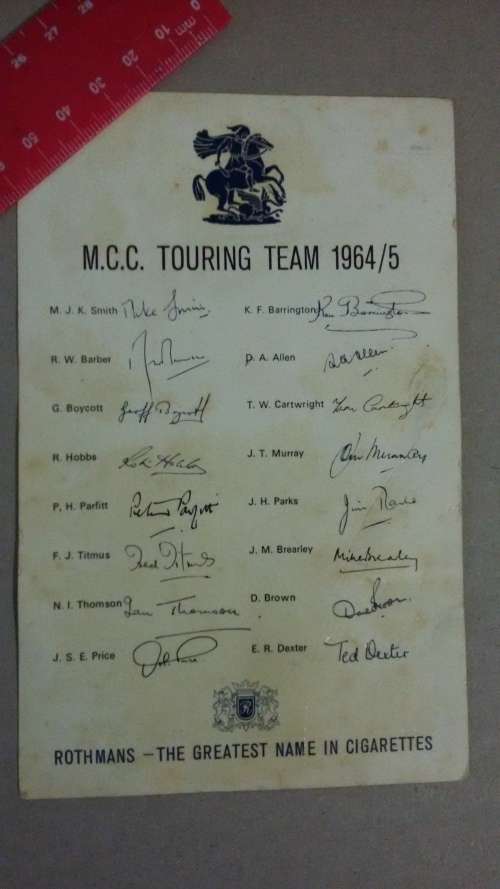 26 27 28
50 40 30 20 10 0
M.C.C. TOURING TEAM 1964/5
M. J. K. Smith Mike Smith K. F. Barrington Ken Barrington
R. W. Barber D. A. Allen D.A. Allen
G. Boycott Geoff Boycott T. W. Cartwright Tom Cartwright
R. Hobbs Robin Hobbs J. T. Murray John Murray
P. H. Parfitt Peter Parfitt J. H. Parks Jim Parks
F. J. Titmus Fred Titmus J. M. Brearley Mike Brearley
N. I. Thomson Ian Thomson D. Brown
J. S. E. Price John Price E. R. Dexter Ted Dexter
ROTHMANS – THE GREATEST NAME IN CIGARETTES